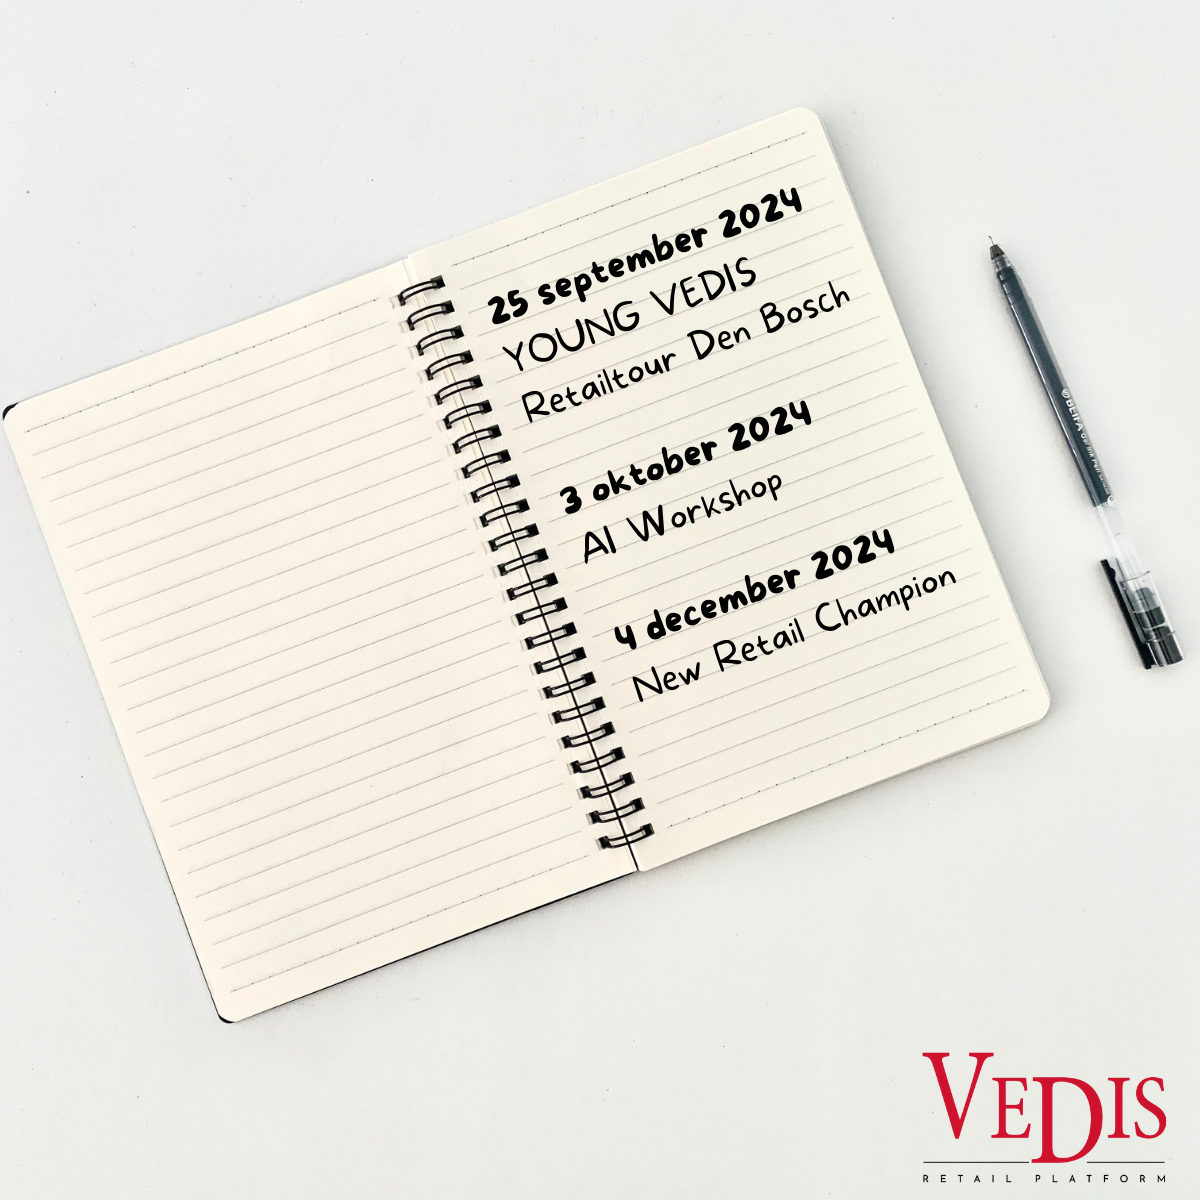 25 september 2024
YOUNG VEDIS
Retailtour Den Bosch
3 oktober 2024
AI Workshop
4 december 2024
New Retail Champion
VEDIS
RETAIL PLATFORM